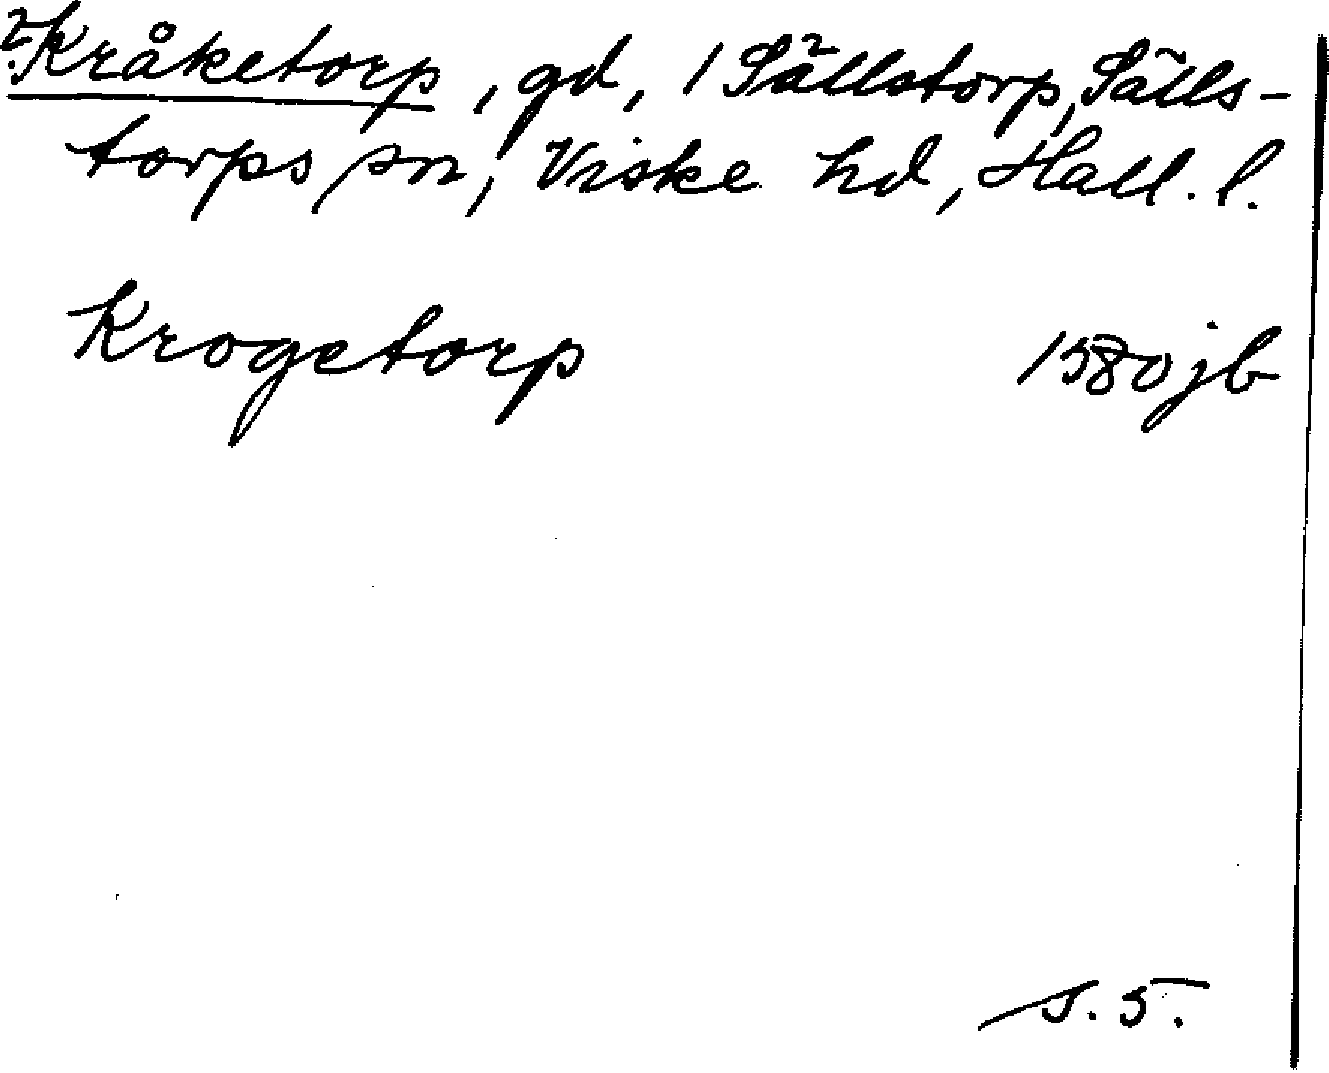 ?Kråketorp, gd, 1 Sällstorp, Sälls-
torps sn, Viske hd, Hall. l.
Krogetorp 1580 jb
s. 5.